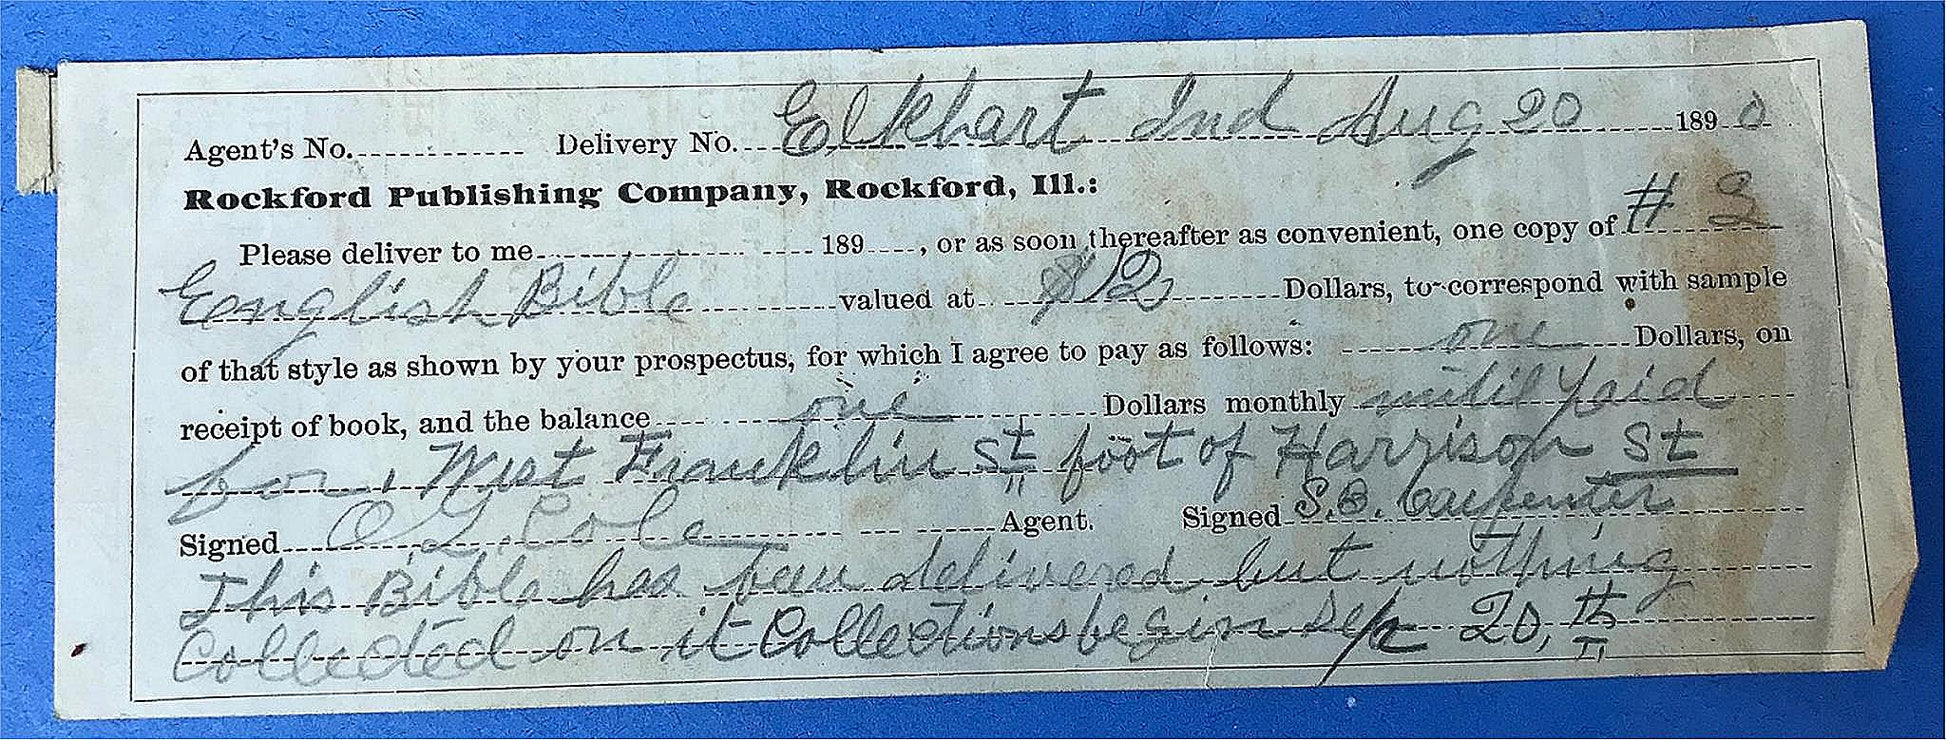 Agent's No. Delivery No. Elkhart Ind Aug 20 1890
Rockford Publishing Company, Rockford, Ill.:
Please deliver to me 189 , or as soon thereafter as convenient, one copy of # 3
Eenglish Bible valued at $12 Dollars, to correspond with sample
of that style as shown by your prospectus, for which I agree to pay as follows: one Dollars, on
receipt of book, and the balance one Dollars monthly until paid
for, West Franklin St foot of Harrison St
Signed O. G. Cole Agent. Signed S.B. Carpenter
This Bible has been delivered but nothing
Collected on it Collections begin Sep 20, th